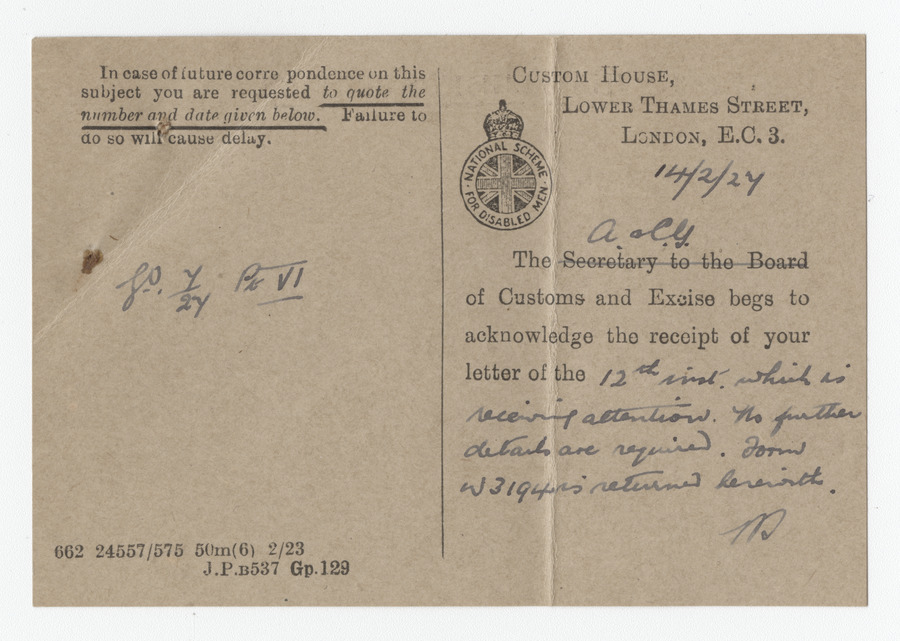 In case of future corre pondence on this
subject you are requested to quote the
number and date given below. Failure to
do so will cause delay.
7/27 Pt VI
662 24557/575 50m(6) 2/23
J.P.B537 Gp.129
CUSTOM HOUSE,
LOWER THAMES STREET,
LONDON, E.C. 3.
NATIONAL SCHEME
FOR DISABLED MEN
14/2/27
The Secretary to the Board
of Customs and Excise begs to
acknowledge the receipt of your
letter of the 12th inst. which is
receiving attention. No further
details are required. Form
W3194 is returned herewith.